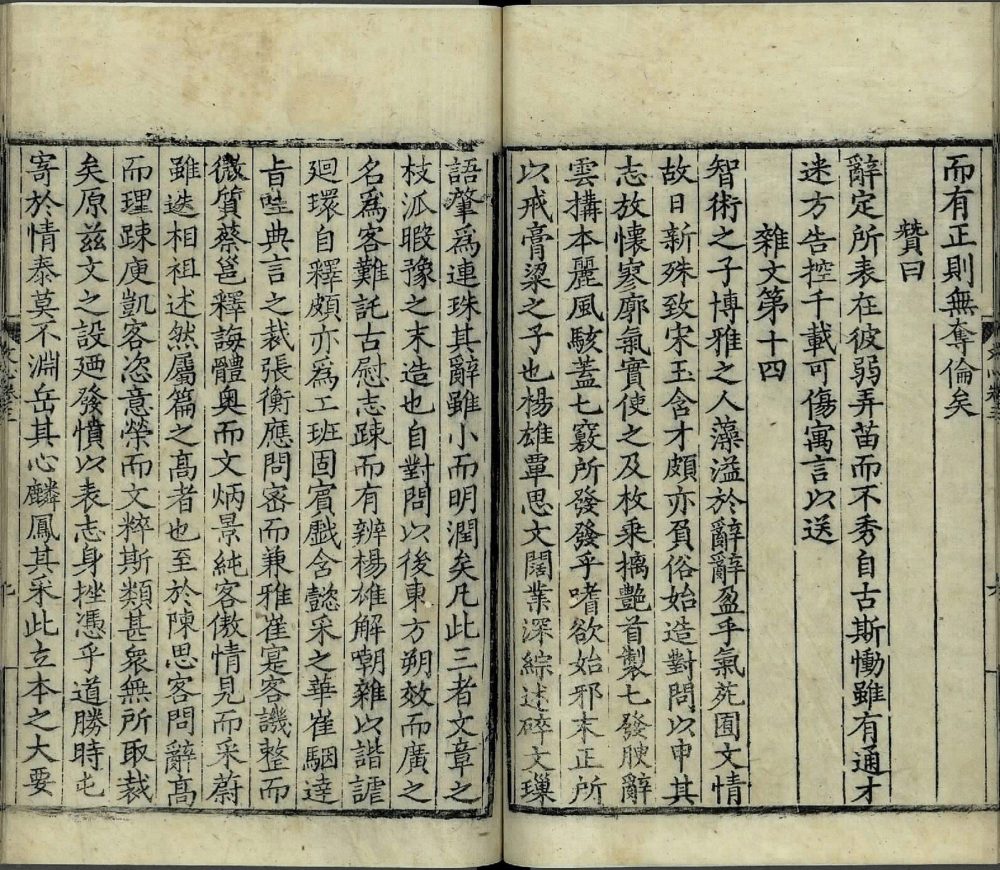 而有正則無奪倫矣
贊曰
辭定所表在彼弱弄苗而不秀自古斯慟雖有通才
迷方告控千載可傷寓言以送
雜文第十四
智術之子博雅之人藻溢於辭辭盈乎氣苑囿文情
故日新殊致宋玉含才頗亦負俗始造對問以申其
志放懷寥廓氣實使之及枚乘摛艷首製七發腴辭
雲搆本麗風駭蓋七竅所發發乎嗜欲始邪末正所
以戒膏粱之子也楊雄覃思文闊業深綜述碎文璅
語肇爲連珠其辭雖小而明潤矣凡此三者文章之
枝泒暇豫之末造也自對問以後東方朔效而廣之
名爲客難託古慰志踈而有辨楊雄解嘲雜以諧謔
廻環自釋頗亦爲工班固賓戲含懿采之華崔駰達
旨吐典言之裁張衡應問宻而兼雅崔寔客譏整而
微質蔡邕釋誨體奧而文炳景純客傲情見而采蔚
雖迭相祖述然屬篇之髙者也至於陳思客問辭髙
而理踈庾凱客恣意榮而文粹斯類甚衆無所取裁
矣原兹文之設廼發憤以表志身挫憑乎道勝時屯
寄於情泰莫不淵岳其心麟鳳其采此立本之大要